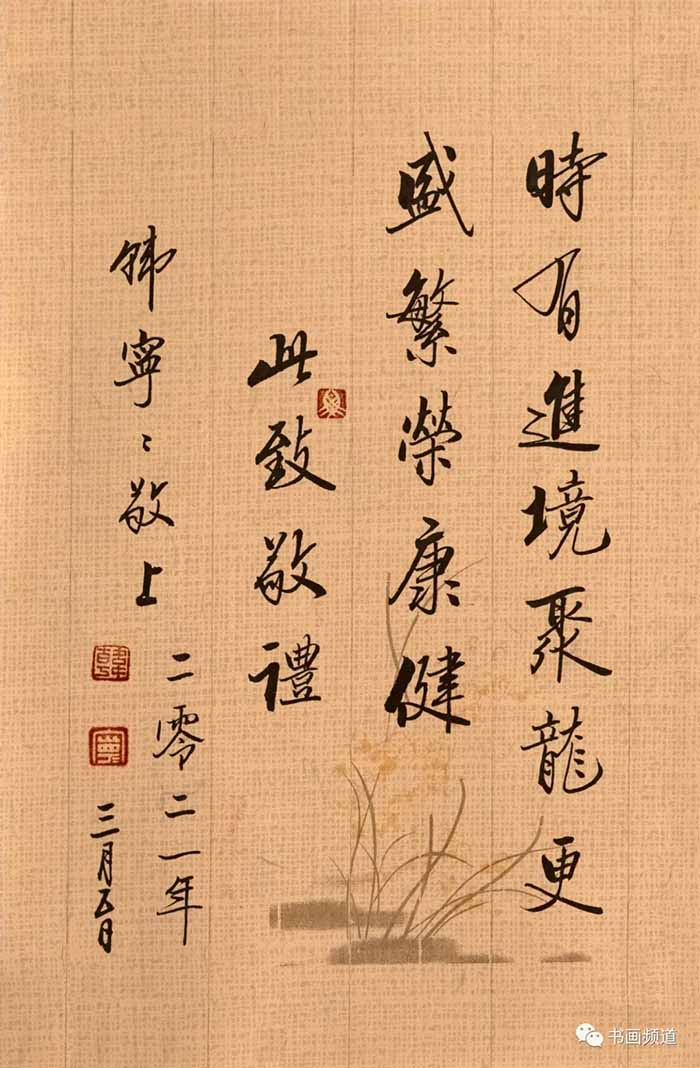 時有進境聚龍更
盛繁榮康健
此致敬禮
韓寧〻敬上
二零二一年
三月五日
韓
寧
书画频道